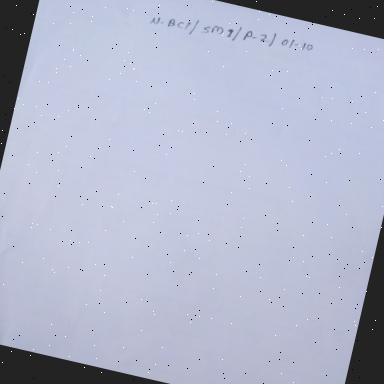 N-BC1/ SM9/ P-2/ 01-10